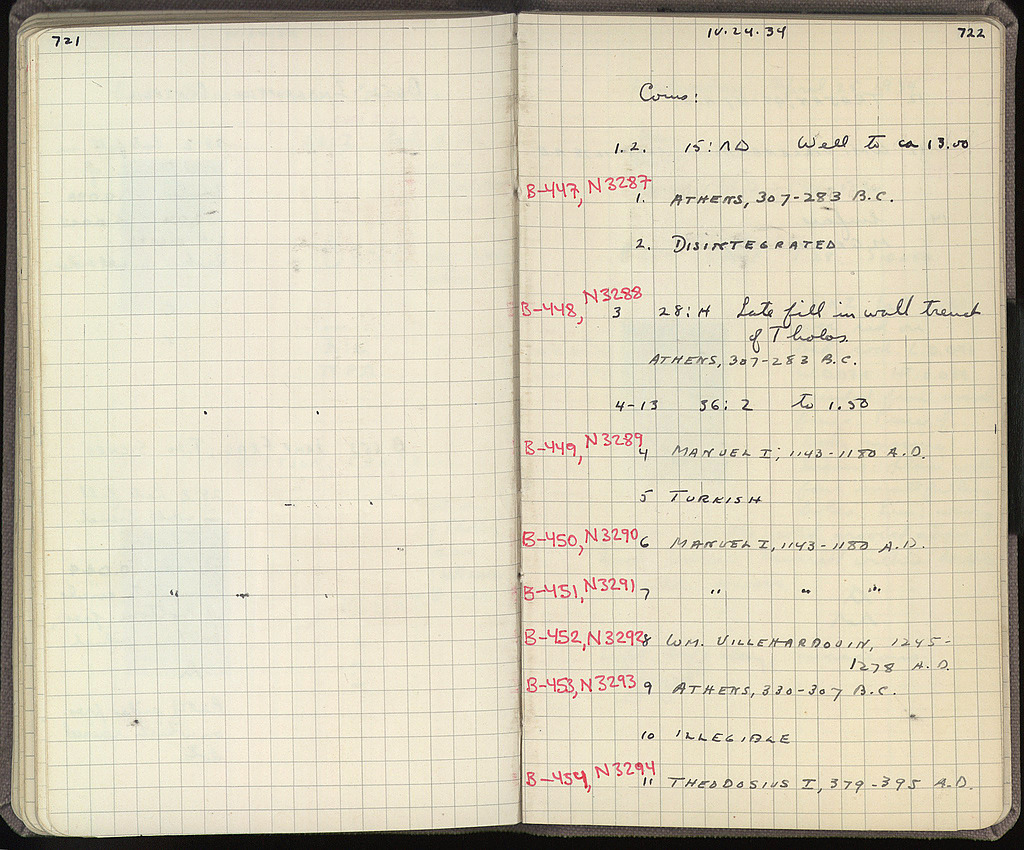 721
IV.24.34 722
Coins:
1.2. 15:ΛΔ Well to ca 13.00
B-447, N3287
1. ATHENS, 307-283 B.C.
2. DISINTEGRATED
B-448, N3288 3 28:H Late fill in wall trench
of Tholos.
ATHENS, 307-283 B.C.
4-13 36:2 to 1.50
B-449, N3289 4 MANUEL I; 1143-1180 A.D.
5 TURKISH
B-450, N3290 6 MANUEL I, 1143-1180 A.D.
B-451, N3291 7 " " "
B-452, N3292 8 WM. VILLEHARDOUIN, 1245-
1278 A.D.
B-453, N3293 9 ATHENS, 330-307 B.C.
10 ILLEGIBLE
B-454, N3294 11 THEODOSIUS I, 379-395 A.D.